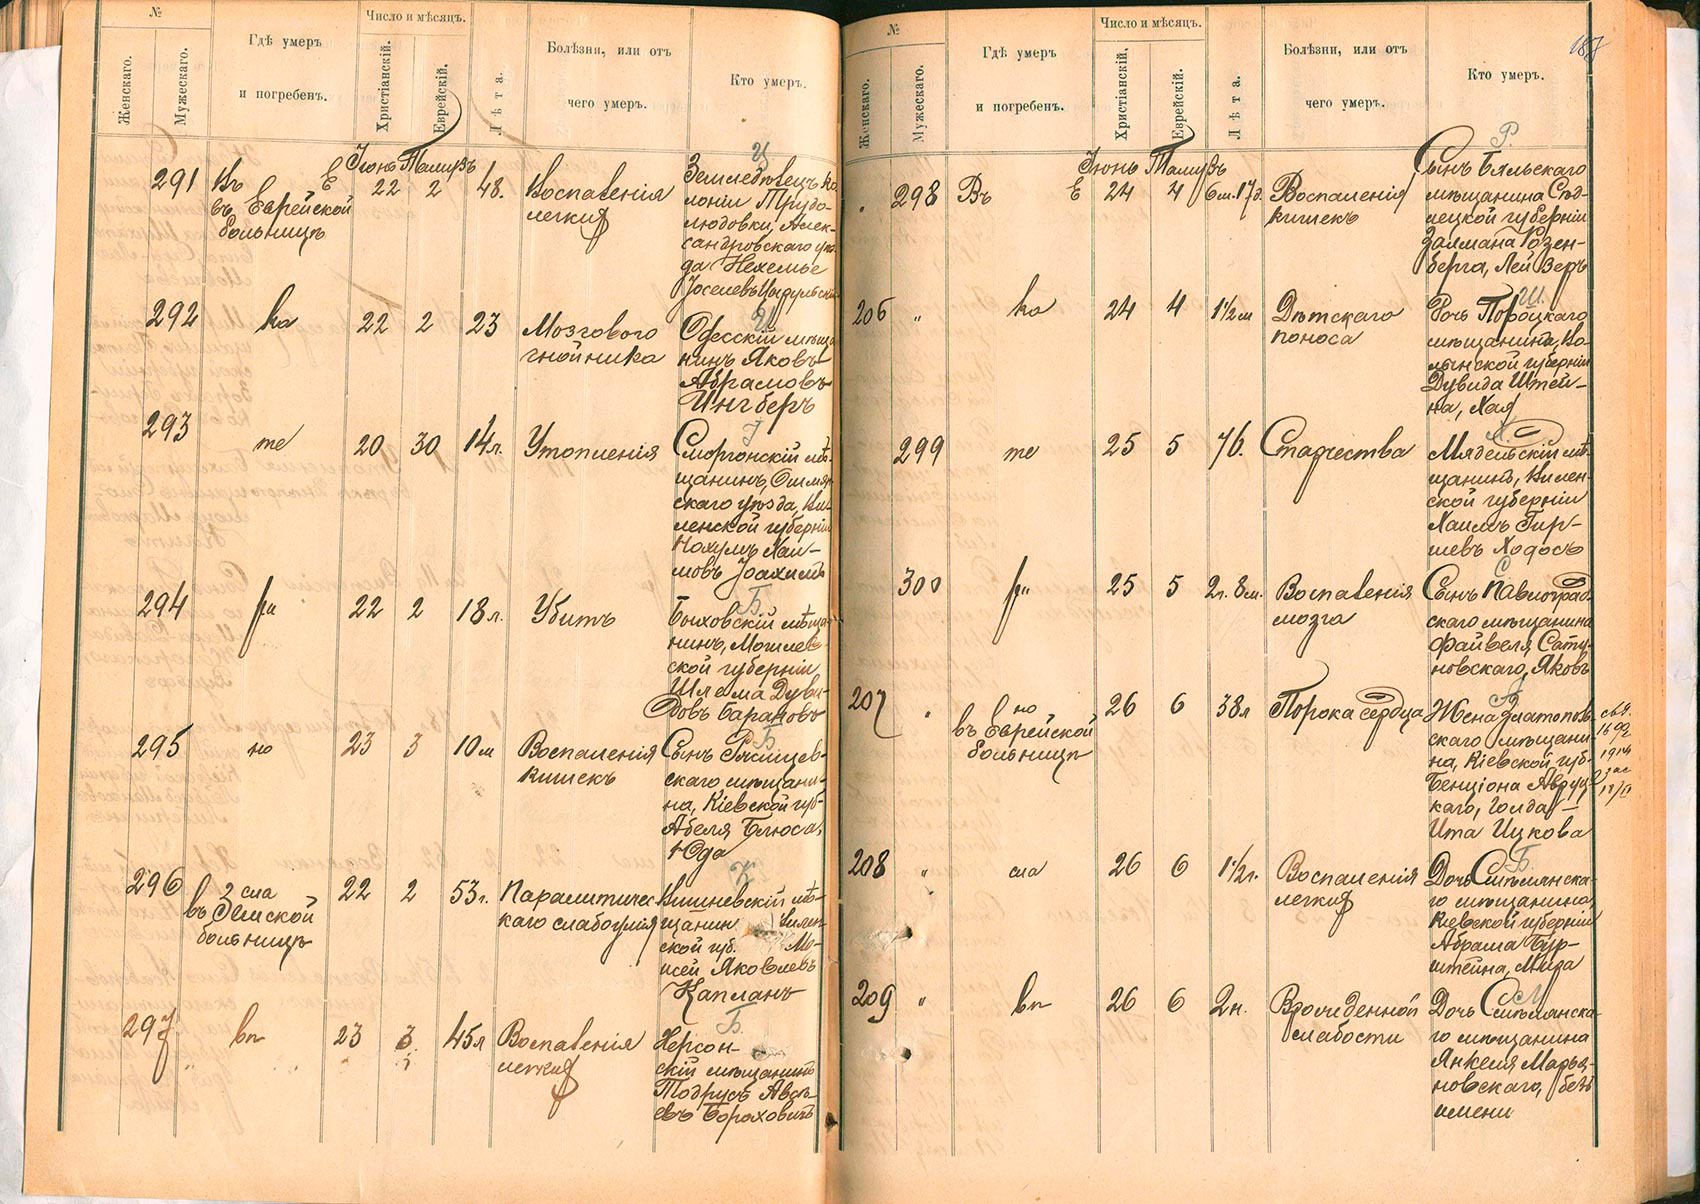 №
Женскаго.
Мужескаго.
Гдѣ умеръ
и погребенъ.
Число и мѣсяцъ.
Христіанскій.
Еврейскій.
Лѣта.
Болѣзни, или отъ
чего умеръ.
Кто умеръ.
Іюнь Тамузъ
291 Въ Е 22 2 48. Воспаленія
въ Еврейской
больницѣ
легкихъ
Ц
Земледѣлецъ ко-
лоніи Трудо-
любовки, Алек-
сандровскаго уѣз-
да Нехемье
Іоселевъ
292 ка 22 2 23 Мозгового
гнойника
И
Одесскій мѣща-
нинъ Яковъ
Абрамовъ
Ингберъ
293 те 20 30 14 л. Утопленія
І
Сморгонскій мѣ-
щанинъ, Ошмян-
скаго уѣзда, Ви-
ленской губерніи
Нохумъ Хаи-
мовъ Іоахимъ
294 ри 22 2 18 л. Убитъ
Б
Быховскій мѣща-
нинъ, Могилев-
ской губерніи
Шлема Дуви-
довъ Барановъ
295 но 23 3 10 м Воспаленія
кишекъ
Б
Сынъ Ржищев-
скаго мѣщани-
на, Кіевской губ.
Абеля Блюса,
Юда
296 З сла 22 2 53 г. Паралитичес-
въ Земской
больницѣ
каго слабоумія
К
Вишневскій мѣ-
щанин Вилен-
ской губ. Мо-
исей Яковлевъ
Капланъ
297 вп 23 3 45 л Воспаленія
легкихъ
Б.
Херсон-
скій мѣщанинъ
Тодрусъ Авсѣ-
евъ Бороховичъ
187
№
Женскаго.
Мужескаго.
Гдѣ умеръ
и погребенъ.
Число и мѣсяцъ.
Христіанскій.
Еврейскій.
Лѣта.
Болѣзни, или отъ
чего умеръ.
Кто умеръ.
Іюнь Тамузъ
„ 298 Въ Е 24 4 6 м. 17 д. Воспаленія
кишекъ
Р
Сынъ Бяльскаго
мѣщанина Сѣд-
лецкой губерніи
Залмана Розен-
берга, Лейзеръ
206 „ ка 24 4 1 1/2 м Дѣтскаго
поноса
Ш.
Дочь Пороцкаго
мѣщанина, Во-
лынской губерніи
Дувида Штей-
на, Хая
299 те 25 5 76. Старчества
Х.
Мядельскій мѣ-
щанинъ, Вилен-
ской губерніи
Хаимъ Гир-
шевъ Ходосъ
300 ри 25 5 2 г. 8 м. Воспаленія
мозга
С
Сынъ Павлоград-
скаго мѣщанина
Файвеля Сата-
новскаго, Яковъ
207 „ но 26 6 38 л Порока сердца
въ Еврейской
больницѣ
А
Жена Златопол-
скаго мѣщани-
на, Кіевской губ.
Бенціона Авруц-
каго, Голда
Ита Ицкова
208 „ сла 26 6 1 1/2 г. Воспаленія
легкихъ
Б
Дочь Смѣлянска-
го мѣщанина,
Кіевской губерніи
Абрама Бур-
штейна, Мира
209 „ вп 26 6 2 н. Врожденной
слабости
М
Дочь Смѣлянска-
го мѣщанина
Янкеля Марья-
новскаго, безъ
имени